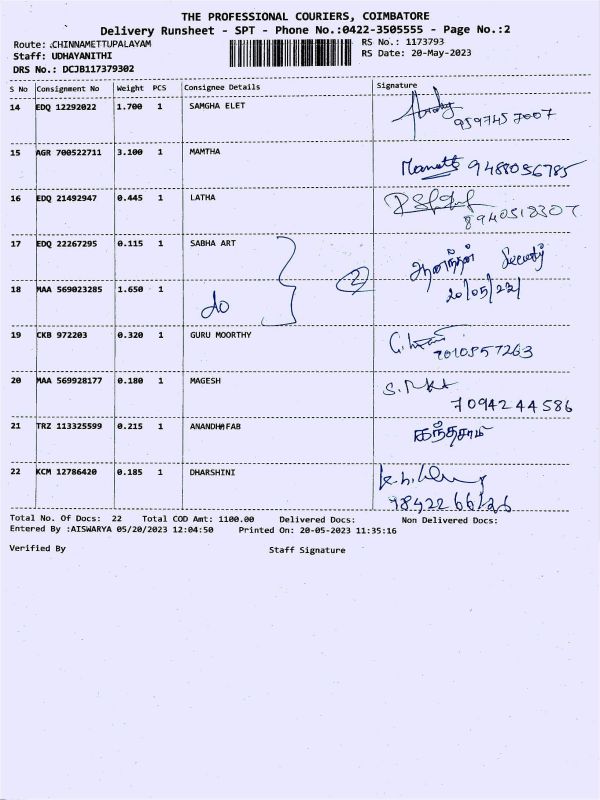 THE PROFESSIONAL COURIERS, COIMBATORE
Delivery Runsheet - SPT - Phone No.:0422-3505555 - Page No.:2
Route: .CHINNAMETTUPALAYAM
RS No.: 1173793
Staff: UDHAYANITHI
RS Date: 20-May-2023
DRS No.: DCJB117379302
S No Consignment No Weight PCS Consignee Details Signature
14 EDQ 12292022 1.700 1 SAMGHA ELET
9597457007
15 AGR 700522711 3.100 1 MAMTHA
9488056785
16 EDQ 21492947 0.445 1 LATHA
8940518307
17 EDQ 22267295 0.115 1 SABHA ART
2
Security
18 MAA 569023285 1.650 1
do
19 CKB 972203 0.320 1 GURU MOORTHY
7010857263
20 MAA 569928177 0.180 1 MAGESH
7094244586
21 TRZ 113325599 0.215 1 ANANDHAFAB
கந்தசாமி
22 KCM 12786420 0.185 1 DHARSHINI
Total No. Of Docs: 22 Total COD Amt: 1100.00 Delivered Docs: Non Delivered Docs:
Entered By :AISWARYA 05/20/2023 12:04:50 Printed On: 20-05-2023 11:35:16
Verified By Staff Signature